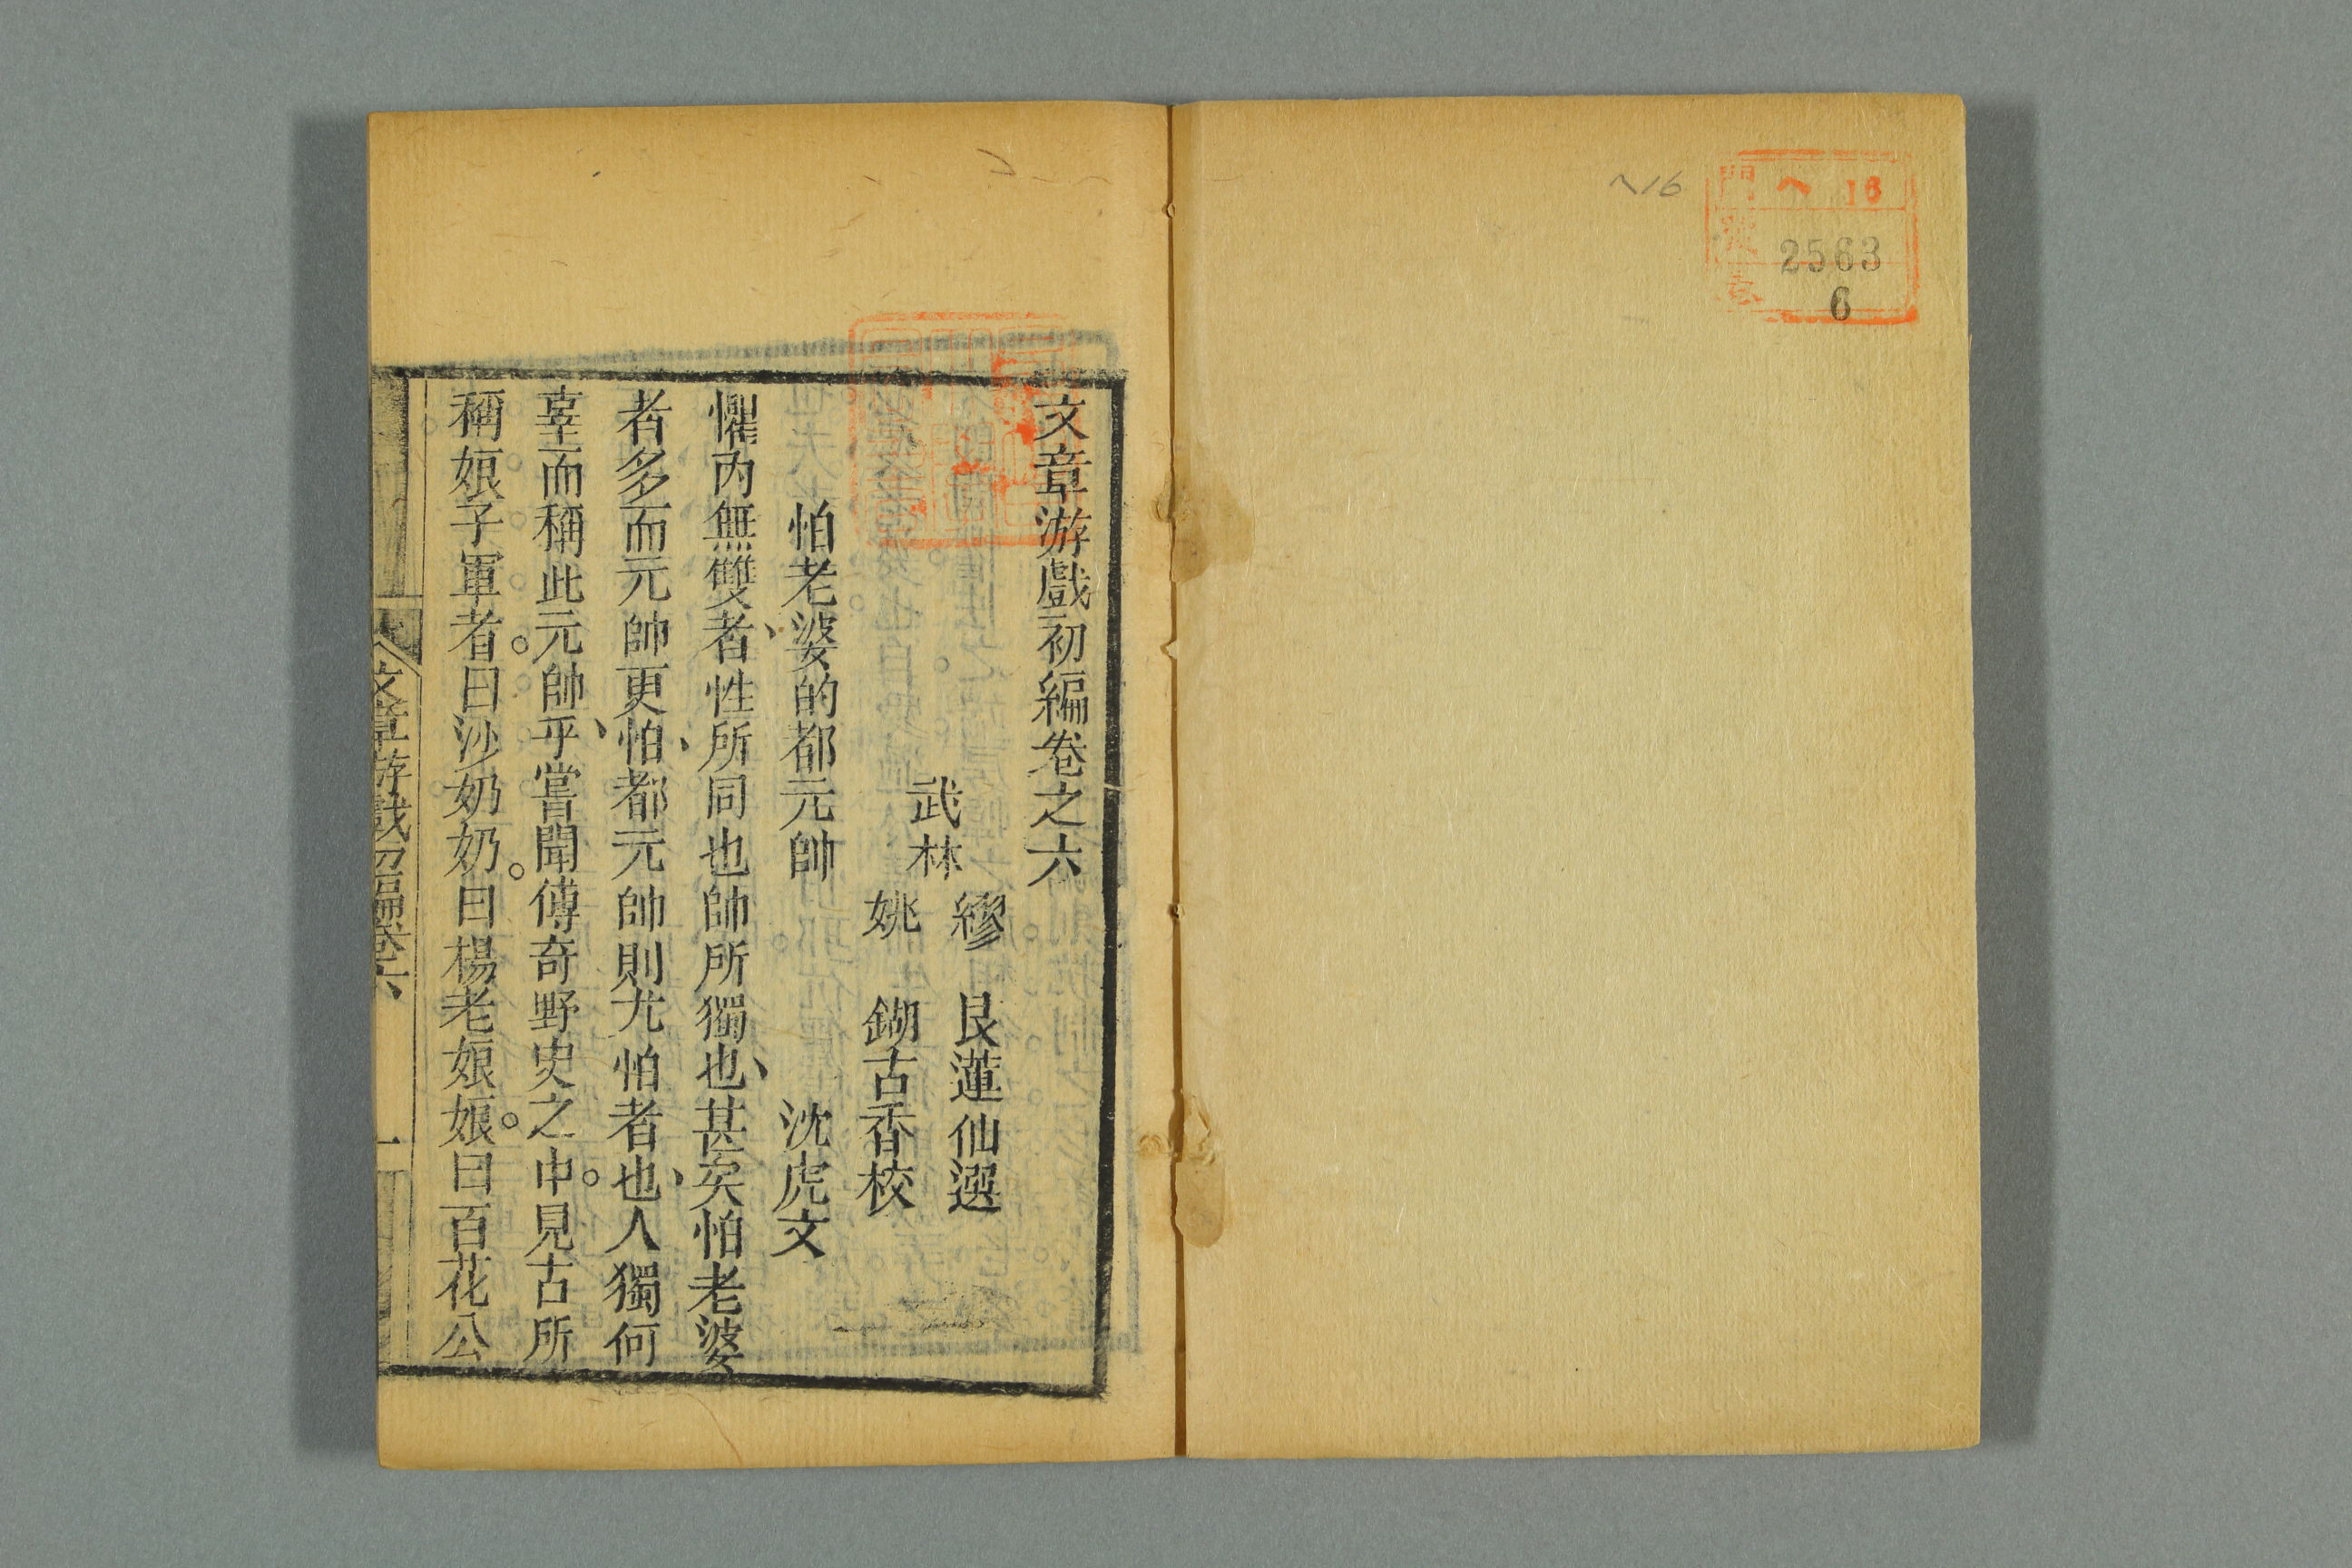 ヘ16
門 ヘ 16
號 2563
6
文章游戲初編卷之六
武林
繆 艮蓮仙選
姚 錮古香校
怕老婆的都元帥 沈虎文
懼內無雙者、性所同也帥所獨也、甚矣怕老婆
者多而元帥更怕、都元帥則尤怕者也、人獨何
辜而稱此元帥乎、嘗聞傳奇野史之中。見古所
稱娘子軍者。曰沙奶奶。曰楊老娘娘。曰百花公
文章游戲初編卷六
一